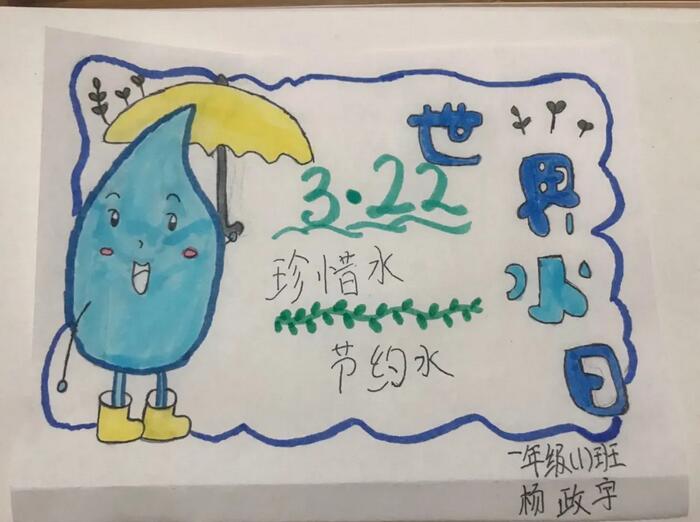 世界水日
3·22
珍惜水
节约水
一年级(1)班
杨政宇